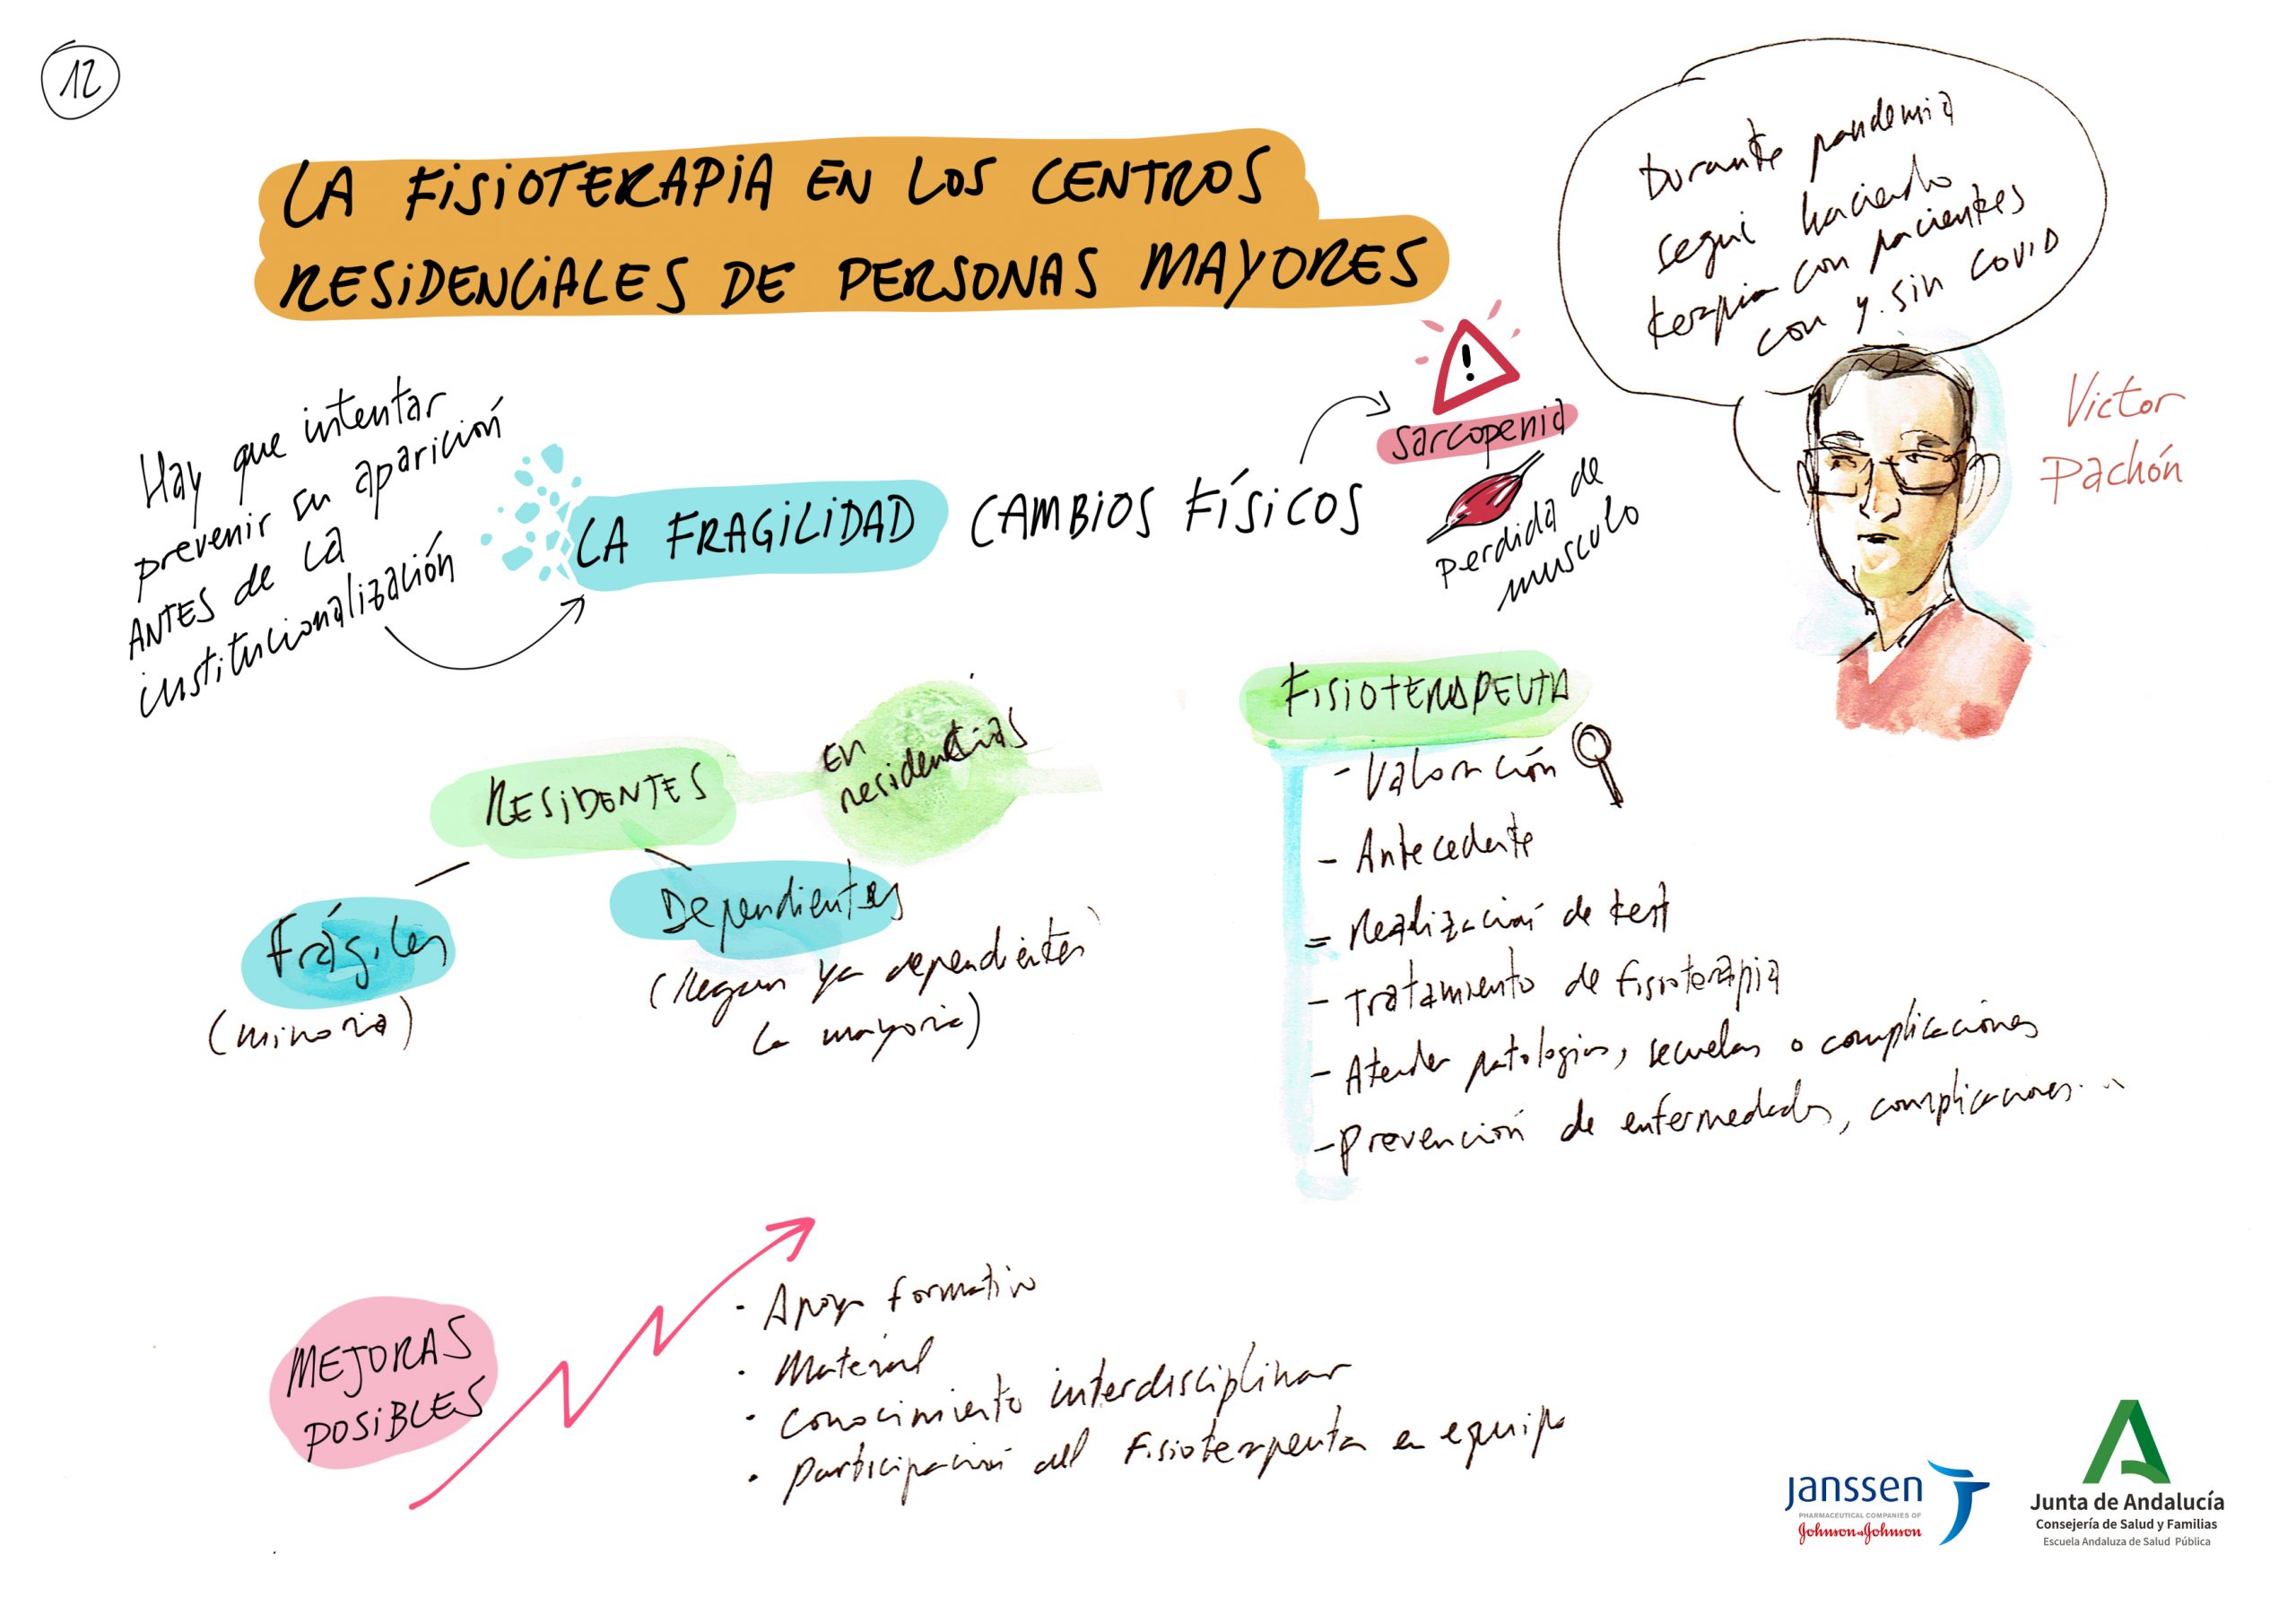 12
LA FISIOTERAPIA EN LOS CENTROS
RESIDENCIALES DE PERSONAS MAYORES
Durante pandemia
segui haciendo
terapia con pacientes
con y sin COVID
Victor
Pachón
Hay que intentar
prevenir su aparición
ANTES de LA
institucionalización
LA FRAGILIDAD CAMBIOS FÍSICOS
!
Sarcopenia
Perdida de
musculo
RESIDENTES
En
residencias
Frágiles
(minoria)
Dependientes
(llegan ya dependientes
la mayoria)
FISIOTERAPEUTA
- Valoración
- Antecedente
= Realización de test
- Tratamiento de fisioterapia
- Atender patologias, secuelas o complicaciones
- Prevención de enfermedades, complicaciones...
MEJORAS
POSIBLES
· Apoyo formativo
· Material
· Conocimiento interdisciplinar
· Participación del Fisioterapeuta en equipo
janssen
PHARMACEUTICAL COMPANIES OF
Johnson & Johnson
Junta de Andalucía
Consejería de Salud y Familias
Escuela Andaluza de Salud Pública